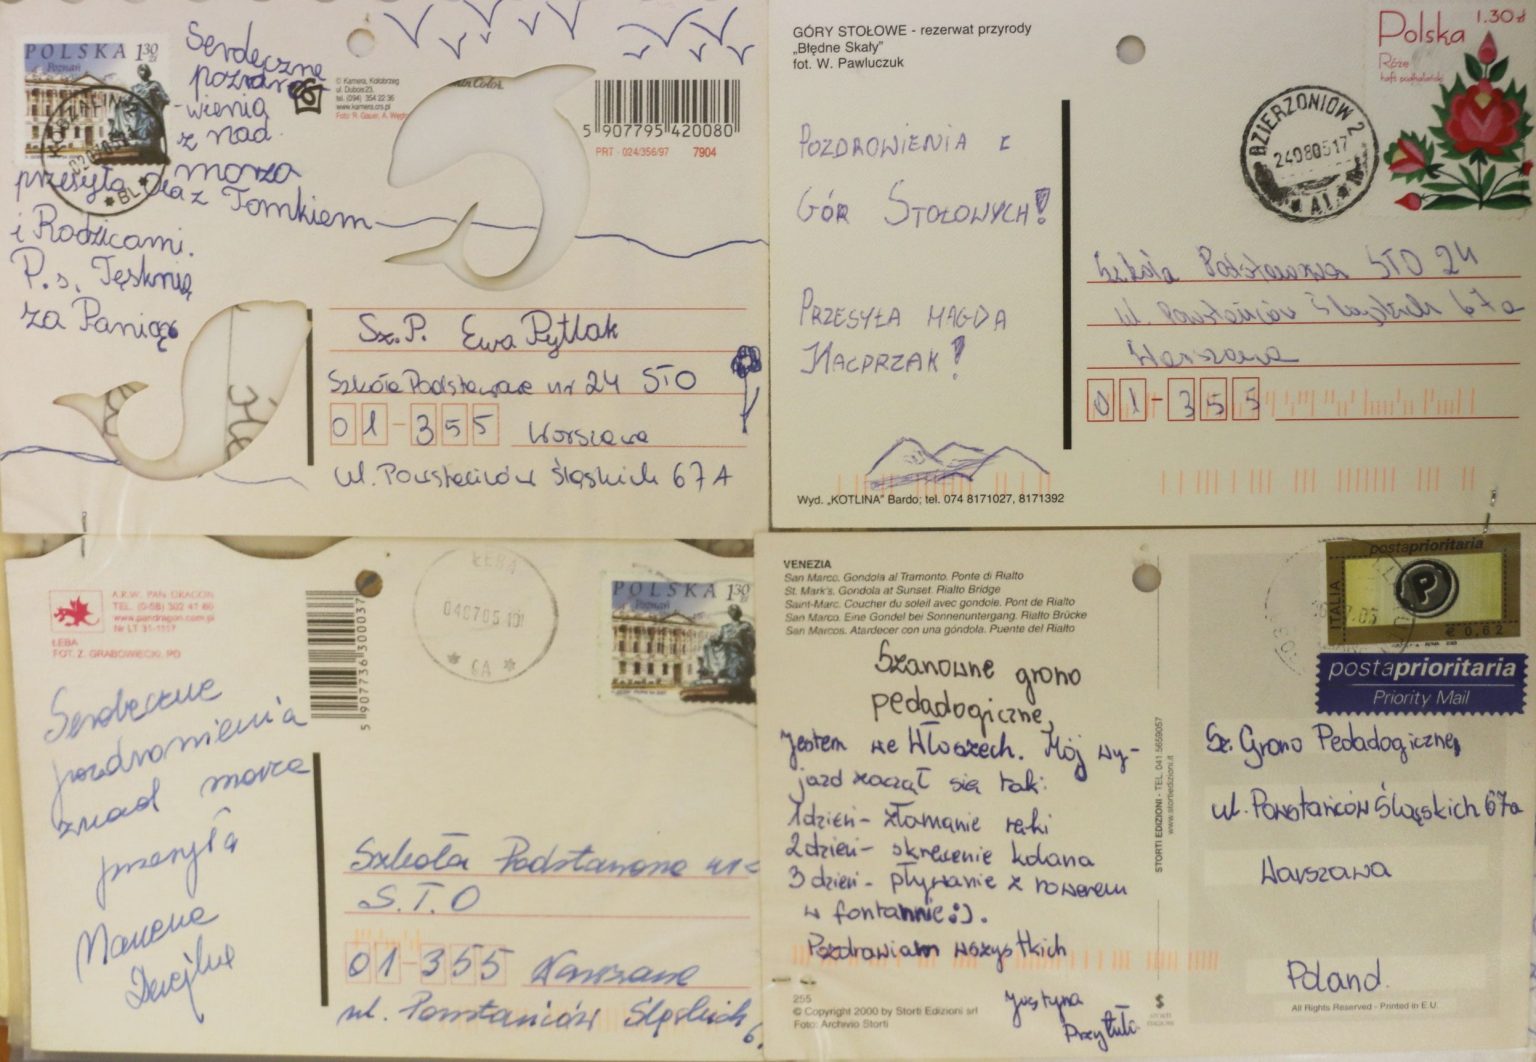 POLSKA 130 zł
Poznań
Serdeczne
pozdro-
-wienia
z nad
morza
przesyła Ola z Tomkiem
i Rodzicami.
P.s. Tęsknię
za Panią
© Kamera, Kołobrzeg
ul. Dubois 23,
tel. (094) 354 22 36
www.kamera.crs.pl
5 907795 420080
PRT - 024/356/97 7904
Sz.P. Ewa Pytlak
Szkoła Podstawowa nr 24 STO
01-355 Warszawa
ul. Powstańców Śląskich 67A
GÓRY STOŁOWE - rezerwat przyrody
„Błędne Skały”
fot. W. Pawluczuk
Polska 1.30 zł
Róże
haft podhalański
DZIERŻONIÓW 2
24080517
* A1 *
POZDROWIENIA Z
GÓR STOŁOWYCH!
PRZESYŁA MAGDA
KACPRZAK!
Szkoła Podstawowa STO 24
ul. Powstańców Śląskich 67a
Warszawa
01-355
Wyd. „KOTLINA” Bardo; tel. 074 8171027, 8171392
A.R.W. PAN DRAGON
TEL. (0-58) 302 41 60
www.pandragon.com.pl
ŁEBA
FOT. Z. GRABOWIECKI, PO
5 907736 300037
ŁEBA
040705
* GA *
POLSKA 130 zł
Poznań
Serdeczne
pozdrowienia
znad morza
przesyła
Szkoła Podstawowa nr
S.T.O
01-355 Warszawa
ul. Powstańców Śląskich 6
VENEZIA
San Marco. Gondola al Tramonto. Ponte di Rialto
St. Mark's. Gondola at Sunset. Rialto Bridge
Saint-Marc. Coucher du soleil avec gondole. Pont de Rialto
San Marco. Eine Gondel bei Sonnenuntergang. Rialto Brücke
San Marcos. Atardecer con una góndola. Puente del Rialto
postaprioritaria
ITALIA
P
€ 0,62
postaprioritaria
Priority Mail
Szanowne grono
pedadogiczne,
jestem we Włoszech. Mój wy-
jazd zaczął się tak:
1dzień- złamanie ręki
2dzień- skręcenie kolana
3dzień- pływanie z rowerem
w fontannie:).
Pozdrawiam wszystkich
Justyna
STORTI EDIZIONI - TEL. 041 5659057
www.stortiedizioni.it
Sz. Grono Pedadogiczne,
ul. Powstańców Śląskich 67a
Warszawa
Poland.
255
© Copyright 2000 by Storti Edizioni srl
Foto: Archivio Storti
All Rights Reserved - Printed in E.U.